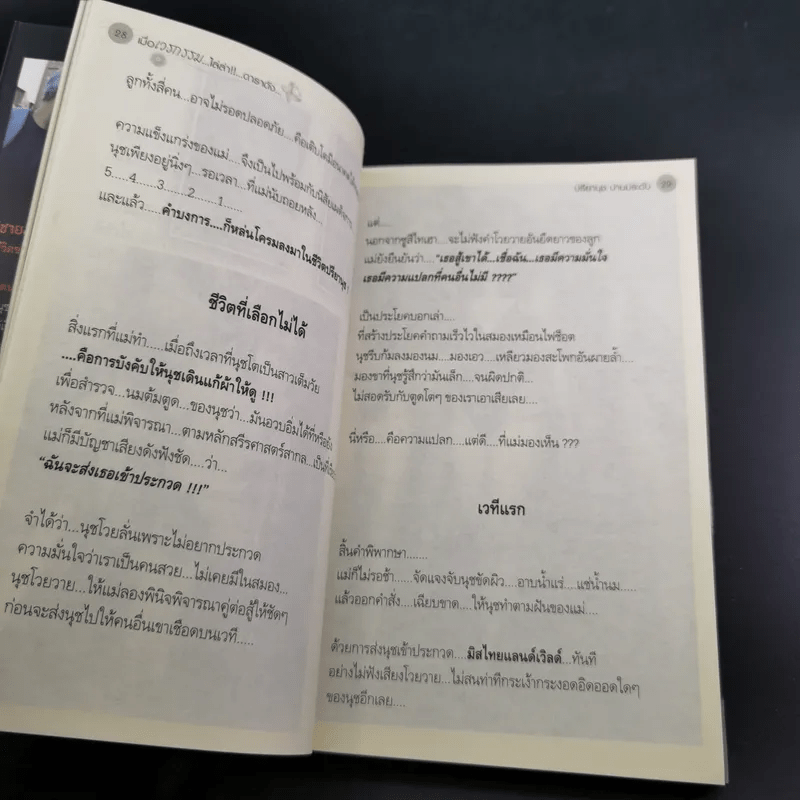 28 เมื่อเวรกรรม...ไล่ล่า!!...ดาราดัง...
ลูกทั้งสี่คน...อาจไม่รอดปลอดภัย....คือเติบโตมีอนาคต
ความแข็งแกร่งของแม่....จึงเป็นไปพร้อมกับนิสัยเผด็จการ
นุชเพียงอยู่นิ่งๆ...รอเวลา...ที่แม่นับถอยหลัง...
5.....4.....3.....2.....1.....
และแล้ว.....คำบงการ....ก็หล่นโครมลงมาในชีวิตปรียานุช !
ชีวิตที่เลือกไม่ได้
สิ่งแรกที่แม่ทำ.....เมื่อถึงเวลาที่นุชโตเป็นสาวเต็มวัย
....คือการบังคับให้นุชเดินแก้ผ้าให้ดู !!!
เพื่อสำรวจ...นมต้มตูด...ของนุชว่า...มันอวบอิ่มได้ที่หรือยัง
หลังจากที่แม่พิจารณา...ตามหลักสรีรศาสตร์สากล...เป็นที่
แม่ก็มีบัญชาเสียงดังฟังชัด.....ว่า...
“ฉันจะส่งเธอเข้าประกวด !!!”
จำได้ว่า...นุชโวยลั่นเพราะไม่อยากประกวด
ความมั่นใจว่าเราเป็นคนสวย...ไม่เคยมีในสมอง...
นุชโวยวาย...ให้แม่ลองพินิจพิจารณาคู่ต่อสู้ให้ชัดๆ
ก่อนจะส่งนุชไปให้คนอื่นเขาเชือดบนเวที.....
ปรียานุช ปานประดับ 29
แต่....
นอกจากซูสีไทเฮา...จะไม่ฟังคำโวยวายอันยืดยาวของลูก
แม่ยังยืนยันว่า....“เธอสู้เขาได้...เชื่อฉัน...เธอมีความมั่นใจ
เธอมีความแปลกที่คนอื่นไม่มี ????”
เป็นประโยคบอกเล่า....
ที่สร้างประโยคคำถามเร็วไวในสมองเหมือนไฟช็อต
นุชรีบก้มลงมองนม...มองเอว...เหลียวมองสะโพกอันผายล้ำ....
มองขาที่นุชรู้สึกว่ามันเล็ก....จนผิดปกติ...
ไม่สอดรับกับตูดโตๆ ของเราเอาเสียเลย....
นี่หรือ....คือความแปลก....แต่ดี....ที่แม่มองเห็น ???
เวทีแรก
สิ้นคำพิพากษา.......
แม่ก็ไม่รอช้า.....จัดแจงจับนุชขัดผิว....อาบน้ำแร่...แช่น้ำนม.....
แล้วออกคำสั่ง....เฉียบขาด....ให้นุชทำตามฝันของแม่....
ด้วยการส่งนุชเข้าประกวด....มิสไทยแลนด์เวิลด์...ทันที
อย่างไม่ฟังเสียงโวยวาย...ไม่สนท่าทีกระเง้ากระงอดอิดออดใดๆ
ของนุชอีกเลย....